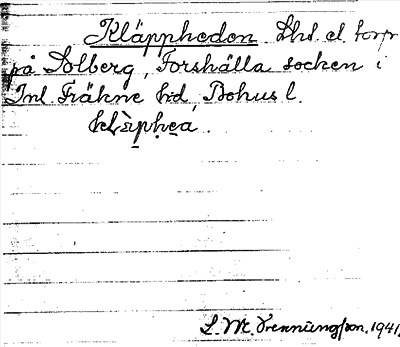 Kläpphedon Lhd. el. torp
på Solberg, Forshälla socken i
Inl. Fräkne hd, Bohus l.
klàp̣hẹa.
S. M. Vrennüngson, 1941.